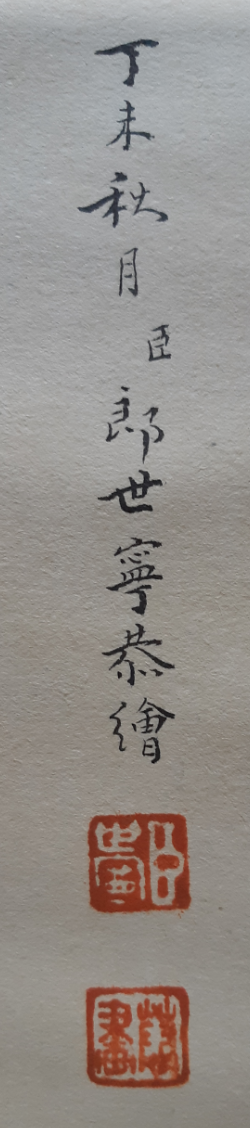 丁未秋月臣郎世寧恭繪